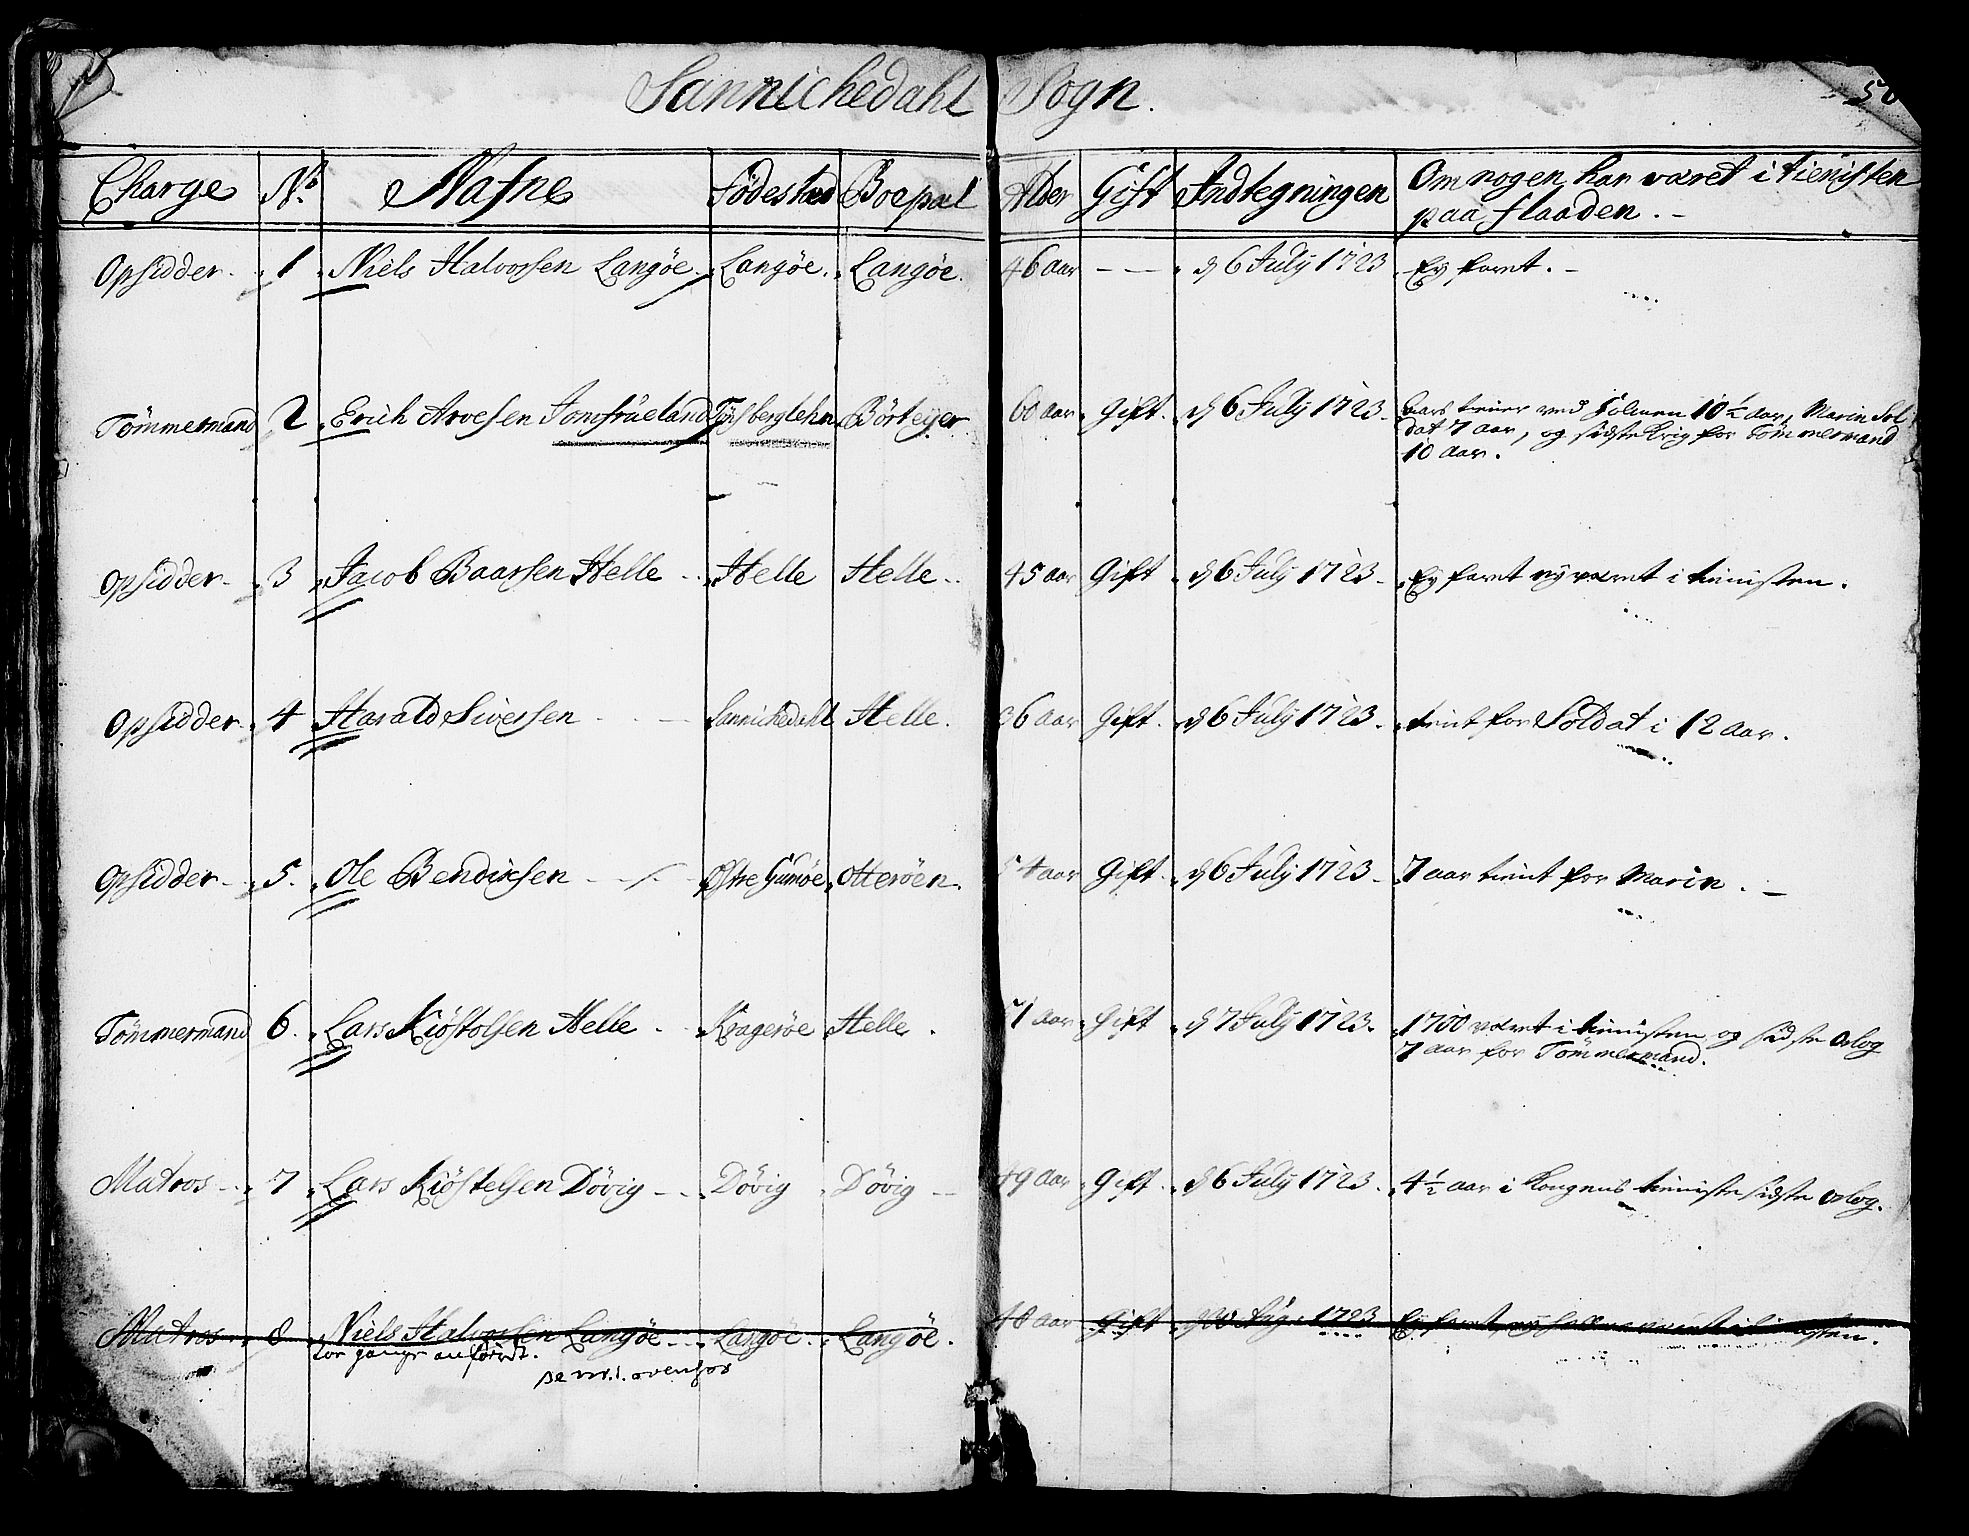 Sannichedahl Sogn.
50
Charge No. Nafne Födestæd Boepæl Alder Gift Indtegningen Om nogen har været i tienisten
paa flaaden.
Opsidder 1 Niels Halvorsen Langöe Langöe Langöe 46 aar - - d 6 July 1723 Ej faret.
Tömmermand 2 Erich Arvesen Jomfrüeland Tönsberglehn Börteyer 60 aar Gift d 6 July 1723 tiener ved Holmen 10 1/2 aar, Marin Sol
dat 7 aar, og sidste krig for Tömmermand
10 aar.
Opsidder 3 Jacob Baarsen Helle Helle Helle 45 aar Gift d 6 July 1723 Ej faret ej været i tienisten.
Opsidder 4 Harald Siversen Sannichedahl Helle 6 aar Gift d 6 July 1723 tient for Soldat i 12 aar.
Opsidder 5. Ole Bendixsen Østre Gumöe Otteröen 54 aar Gift d 6 July 1723 7 aar tient for Marin.
Tömmermand 6. Lars Kiöstolsen Helle Krageröe Helle 51 aar Gift d 7 July 1723 1700 været i tienisten og sidste Orlog
7 aar for Tömmermand.
Matros 7 Lars Kiöstelsen Dövig Dövig Dövig 49 aar Gift d 6 July 1723 4 1/2 aar i Kongens tieniste sidste Orlog.
Matros 8 Niels Halvorsen Langöe Langöe Langöe 48 aar Gift 1723 Ej faret, ej heller været i tienisten.
tov gange anfört.
se nr. 1. ovenfor